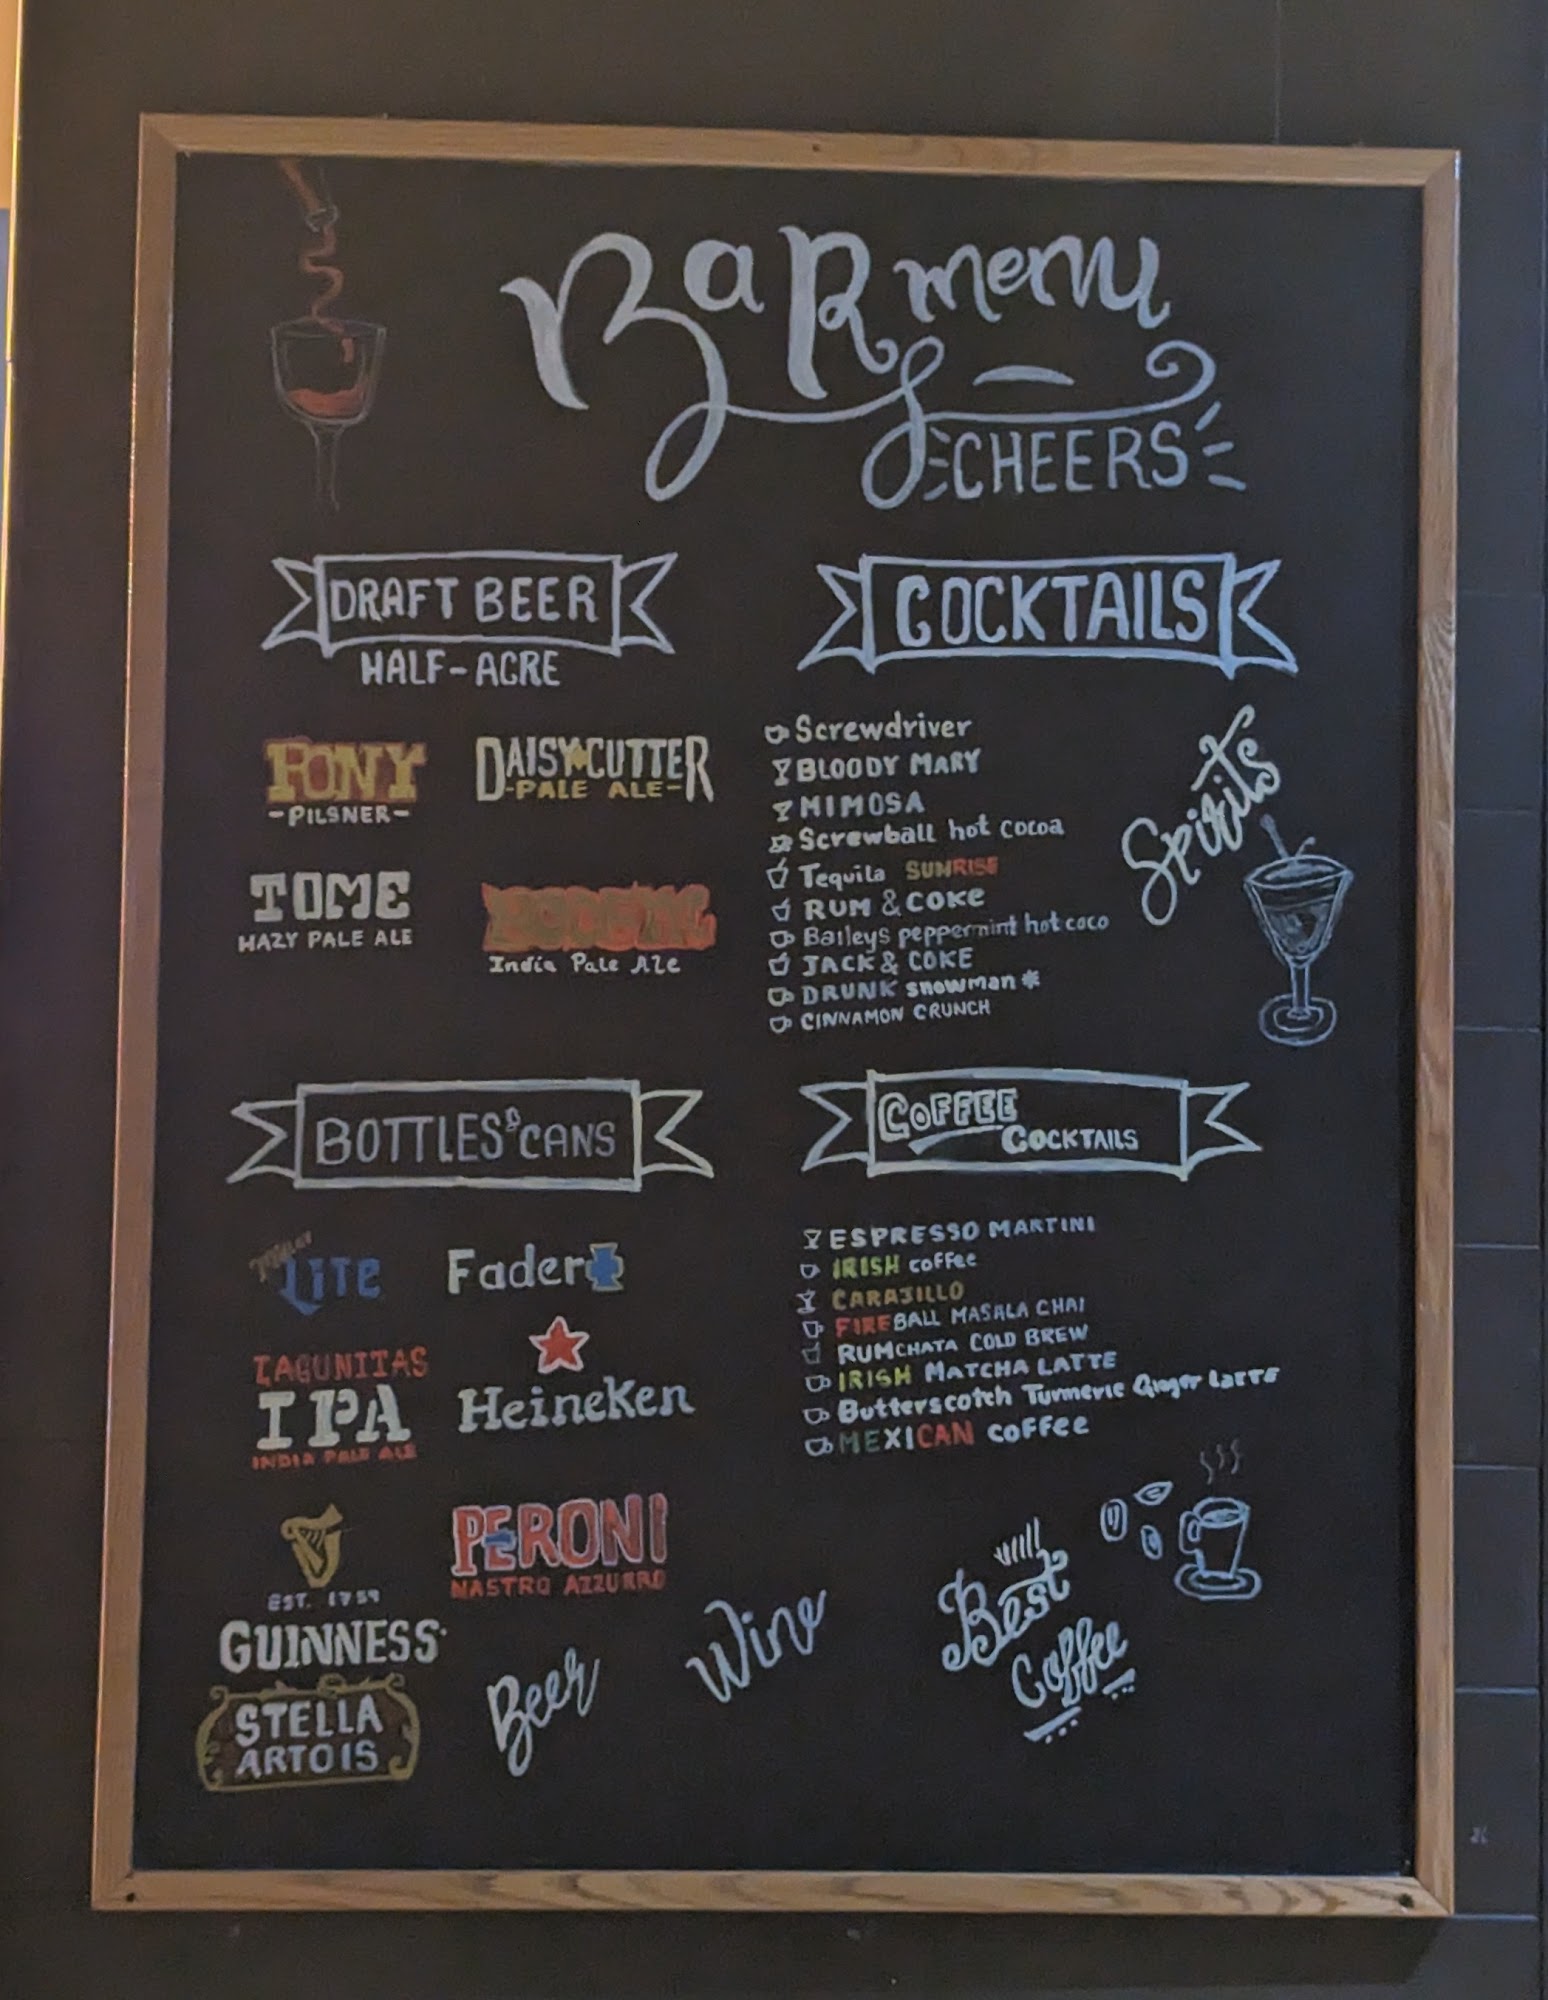 BaR menu
CHEERS
DRAFT BEER
HALF-ACRE
PONY
-PILSNER-
DAISY CUTTER
-PALE ALE-
TOME
HAZY PALE ALE
BODEM
India Pale Ale
COCKTAILS
Screwdriver
BLOODY MARY
MIMOSA
Screwball hot cocoa
Tequila SUNRISE
RUM & COKE
Baileys peppermint hot coco
JACK & COKE
DRUNK snowman *
CINNAMON CRUNCH
Spirits
BOTTLES & CANS
Miller
LITE
Fader
LAGUNITAS
IPA
INDIA PALE ALE
HeineKen
EST. 1759
GUINNESS
PERONI
NASTRO AZZURRO
STELLA
ARTOIS
Beer
Wine
COFFEE
COCKTAILS
ESPRESSO MARTINI
IRISH coffee
CARAJILLO
FIREBALL MASALA CHAI
RUMCHATA COLD BREW
IRISH MATCHA LATTE
Butterscotch Turmeric Ginger LaTTE
MEXICAN coffee
Best
Coffee